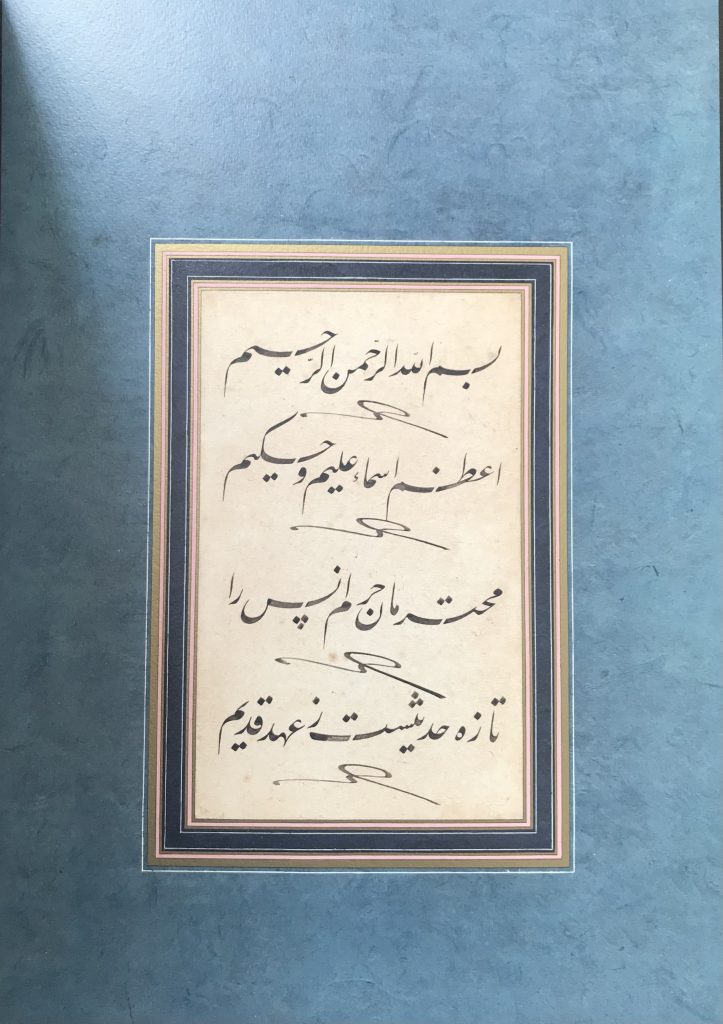 بسم الله الرّحمن الرّحیم
اعظم اسماء علیم و حکیم
محترمان حرم انس را
تازه حدیثیست ز عهد قدیم